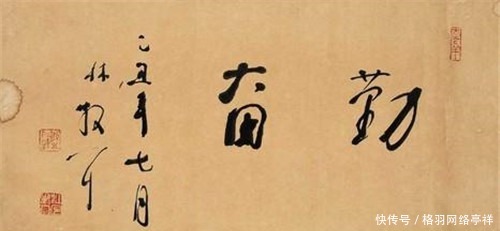 勤奋
乙丑年七月
林散耳
快传号／格羽网络亭祥